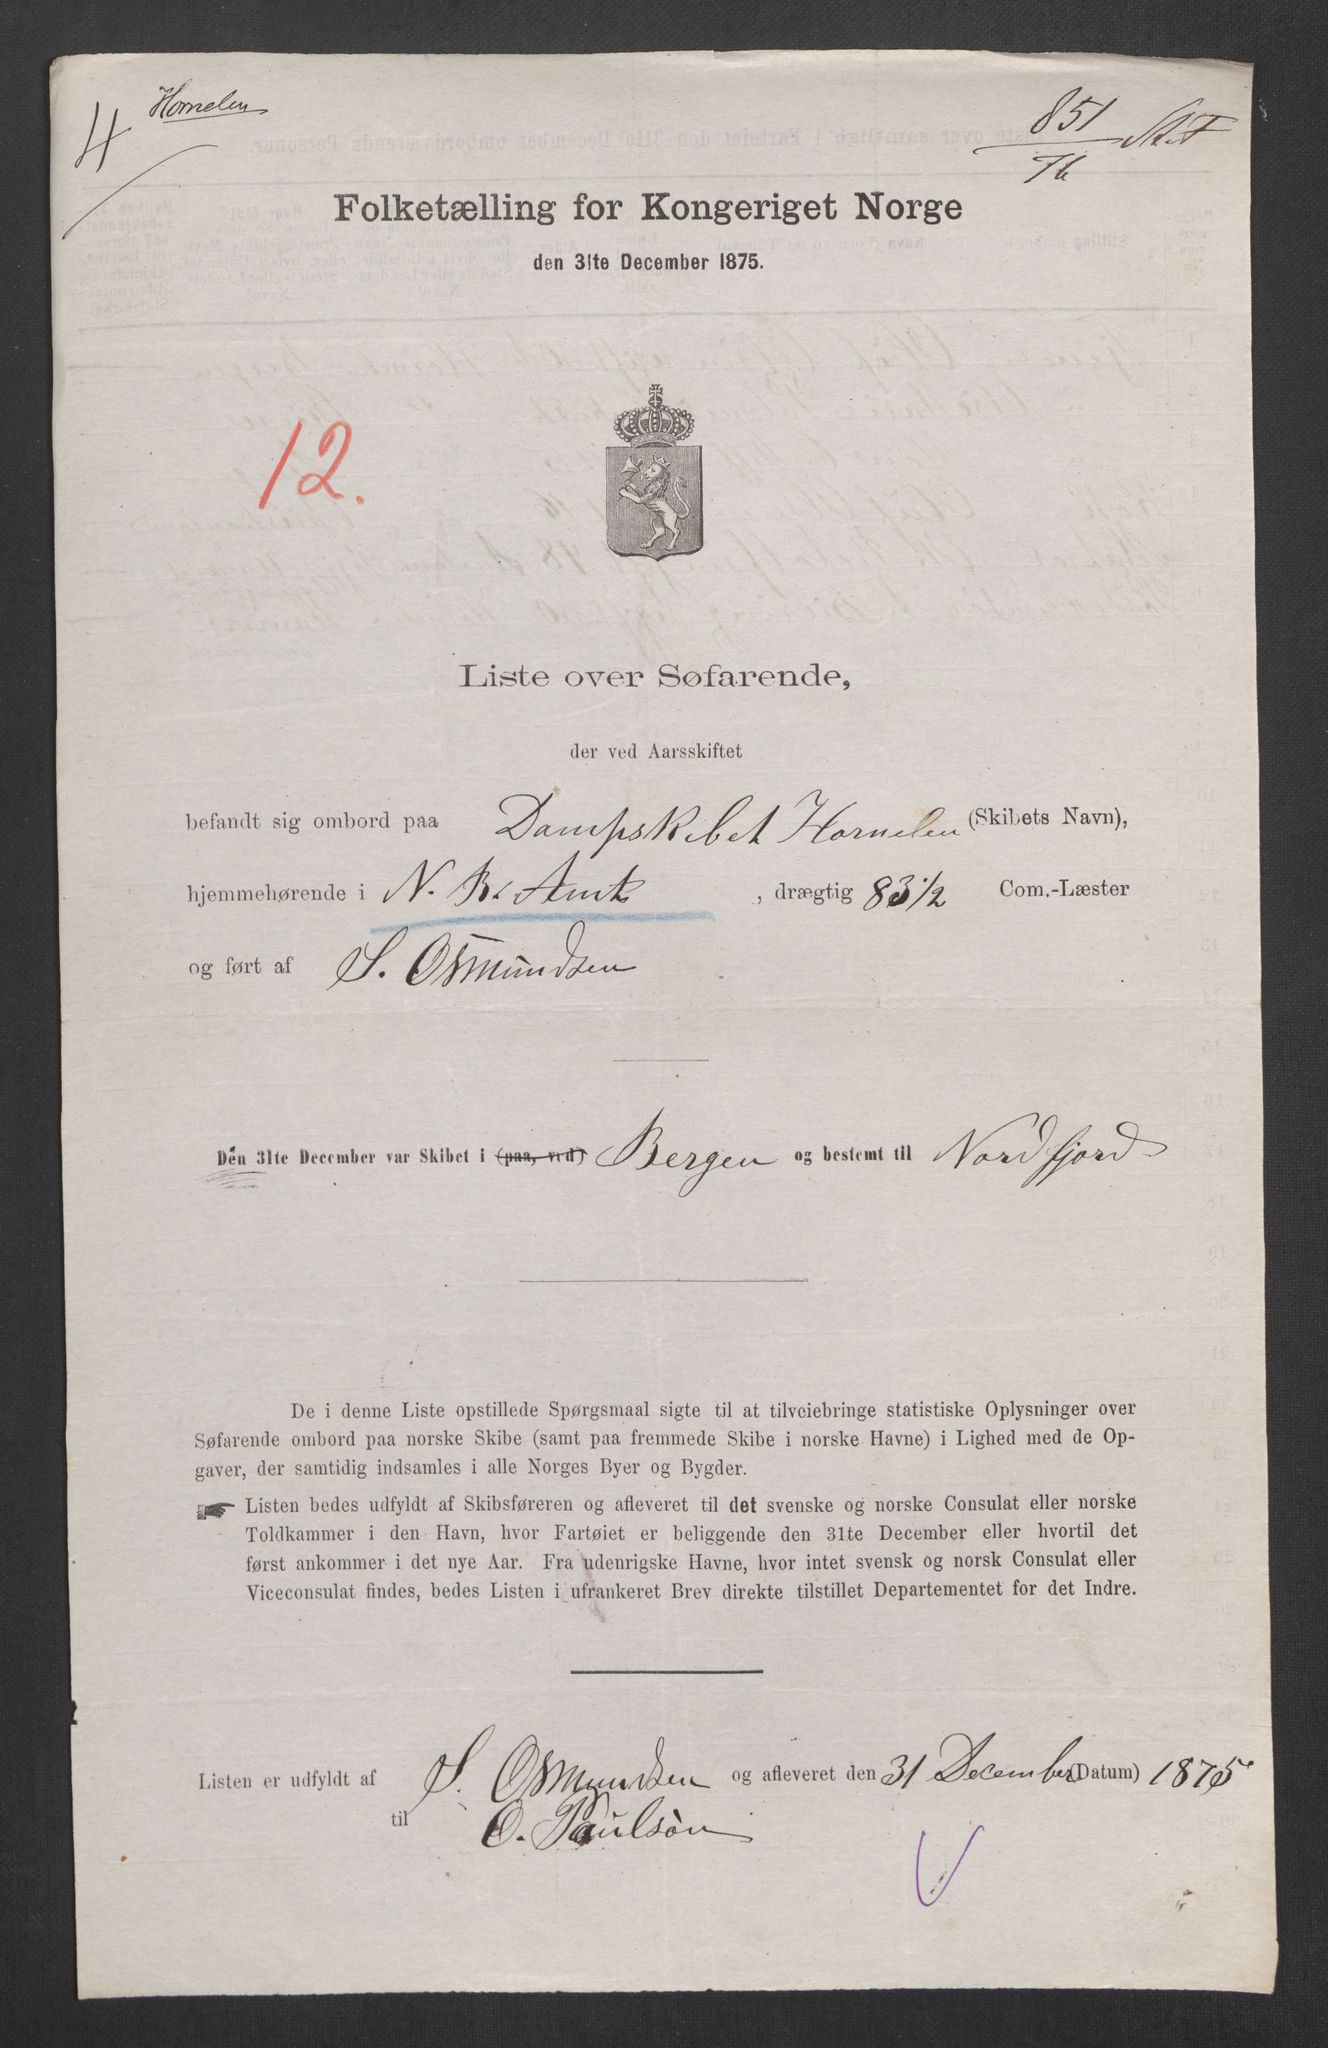 4 Hornelen
851
76
Folketælling for Kongeriget Norge
den 31te December 1875.
12.
Liste over Søfarende,
der ved Aarsskiftet
befandt sig ombord paa Dampskibet Hornelen (Skibets Navn),
hjemmehørende i N. B. Amt , drægtig 83 1/2 Com.-Læster
og ført af S. Osmundsen
Den 31te December var Skibet i (paa, ved) Bergen og bestemt til Nordfjord
De i denne Liste opstillede Spørgsmaal sigte til at tilveiebringe statistiske Oplysninger over
Søfarende ombord paa norske Skibe (samt paa fremmede Skibe i norske Havne) i Lighed med de Op-
gaver, der samtidig indsamles i alle Norges Byer og Bygder.
☛ Listen bedes udfyldt af Skibsføreren og afleveret til det svenske og norske Consulat eller norske
Toldkammer i den Havn, hvor Fartøiet er beliggende den 31te December eller hvortil det
først ankommer i det nye Aar. Fra udenrigske Havne, hvor intet svensk og norsk Consulat eller
Viceconsulat findes, bedes Listen i ufrankeret Brev direkte tilstillet Departementet for det Indre.
Listen er udfyldt af S. Osmundsen og afleveret den 31 December (Datum) 1875
til O. Paulsön